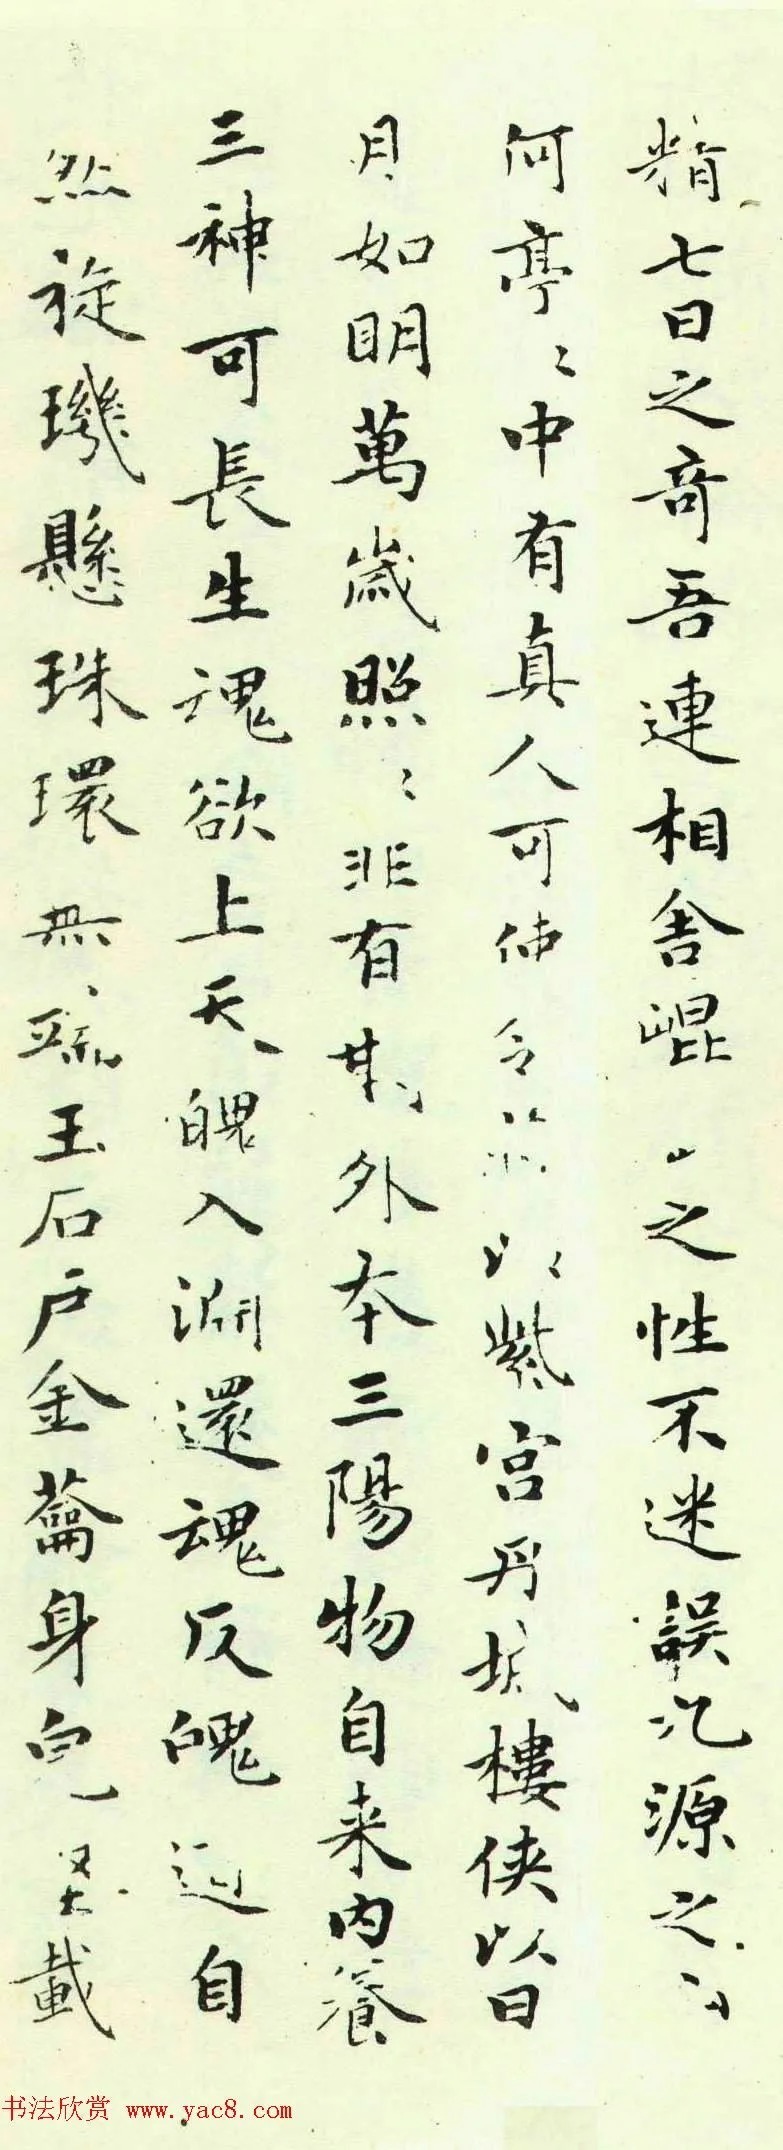 精七日之奇吾連相舍崐山之性不迷誤九源之山
何亭〻中有真人可使令蔽以紫宮丹城樓俠以日
月如明萬歲照〻非有期外本三陽物自来内養
三神可長生魂欲上天魄入淵還魂反魄道自
然旋璣懸珠環無端玉石戶金蘥身皃堅載
书法欣赏 www.yac8.com